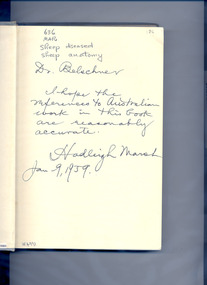 636
MAR
sheep diseases
sheep anatomy
Dr. Belschner
I hope the
references to Australian
work in this book
are reasonably
accurate.
Hadleigh Marsh
Jan 9, 1959.